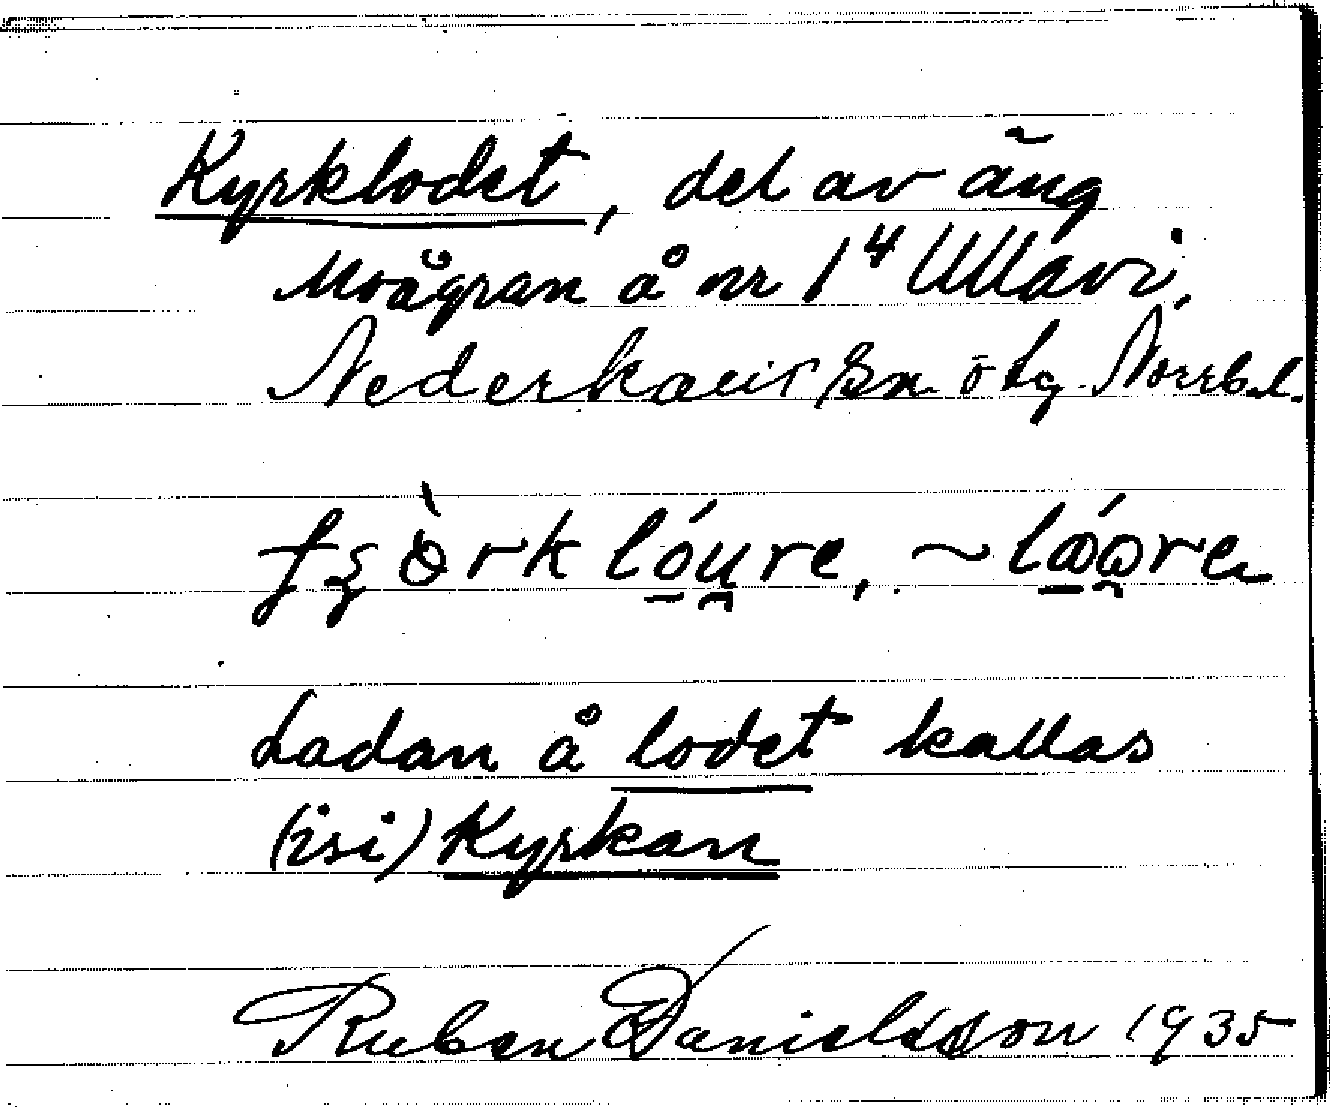 Kyrklodet, del av äng
Moågran å nr 1⁴ Ullavi,
Nederkalix sn ö tg Norrb.l.
lóure, ~
Ladan å lodet kallas
(isi) Kyrkan
Ruben Danielsson 1935